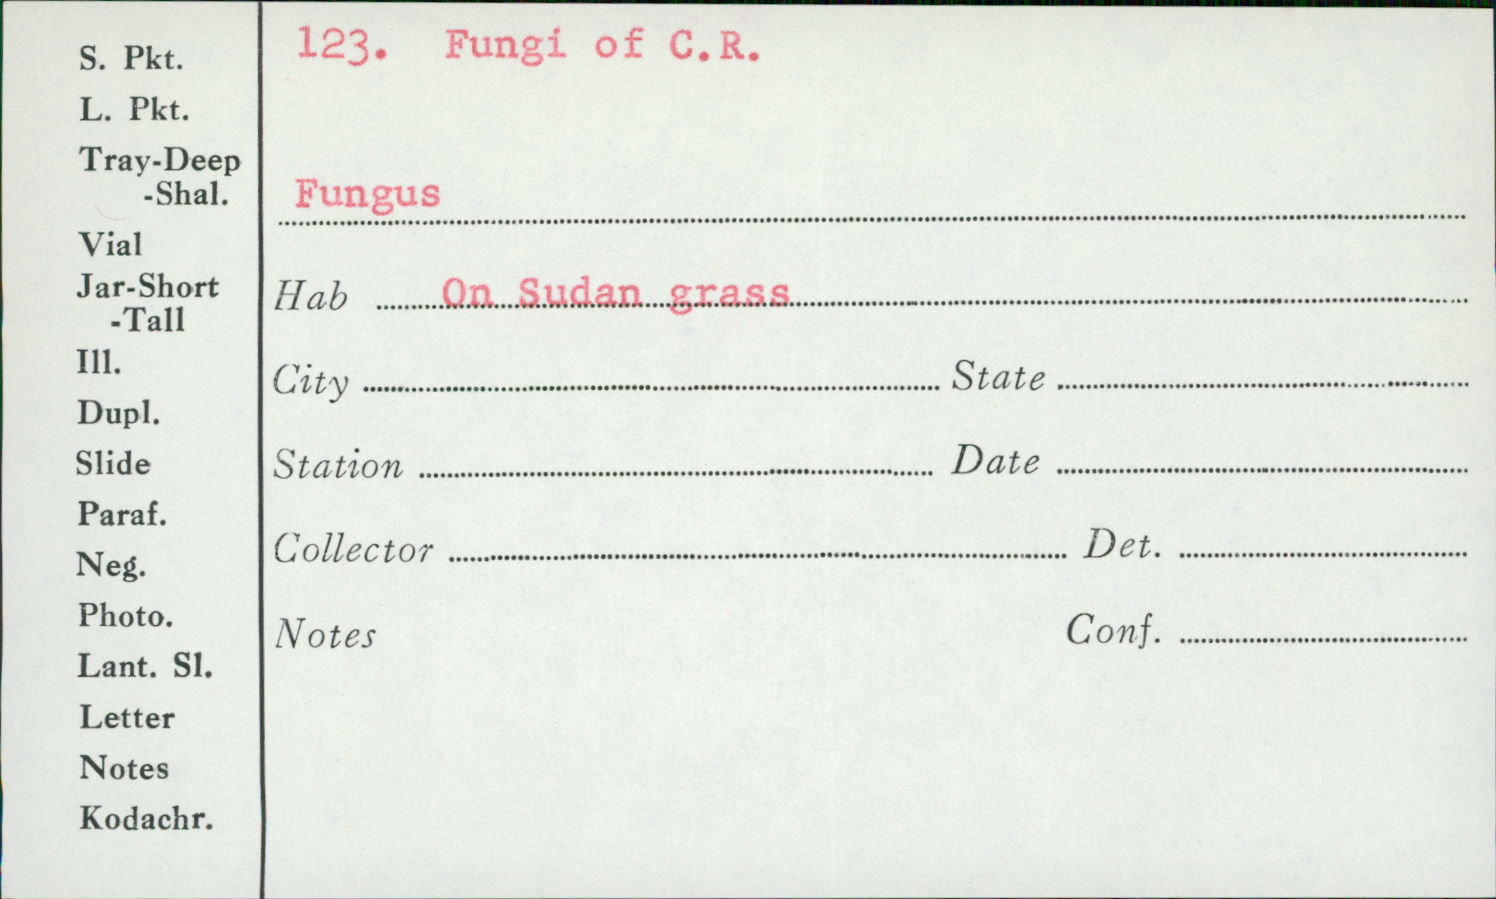 123. Fungi of C.R.
Fungus
Hab On Sudan grass
City State
Station Date
Collector Det.
Notes Conf.
S. Pkt.
L. Pkt.
Tray-Deep
-Shal.
Vial
Jar-Short
-Tall
Ill.
Dupl.
Slide
Paraf.
Neg.
Photo.
Lant. Sl.
Letter
Notes
Kodachr.